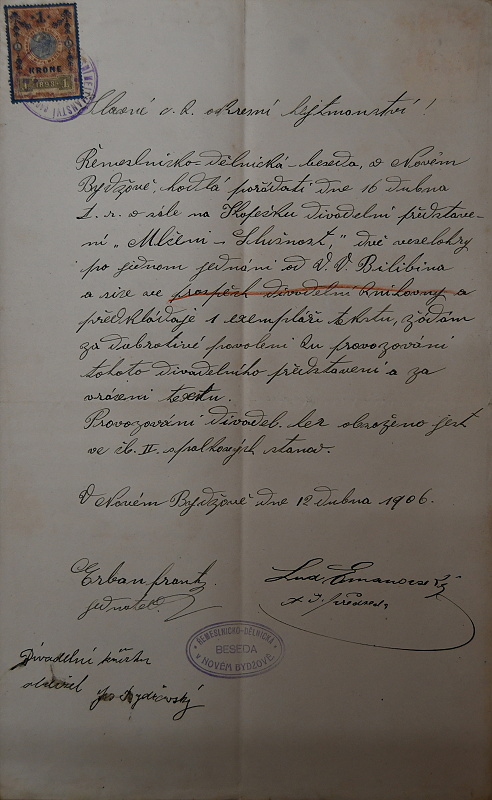 1
KRONE
1 1898 1
Slavné c. k. okresní hejtmanství!
Řemeslnicko-dělnická-beseda, v Novém
Bydžově, hodlá pořádati dne 16 dubna
t. r. v sále na Skořešku divadelní představe-
ní „Mlčení - Slušnost," dvě veselohry
po jednom jednání od V. V. Bilibina
a sice ve prospěch divadelní knihovny a
předkládaje 1 exemplář tekstu, žádám
za dobrotivé povolení ku provozování
tohoto divadelního představení a za
vrácení textu.
Provozování divadel. též obsaženo jest
ve čl. II. spolkových stanov.
V Novém Bydžově dne 12 dubna 1906.
Erban Frant.
jednatel
Lud.
t. č. předseda
ŘEMESLNICKO-DĚLNICKÁ
BESEDA
V NOVÉM BYDŽOVĚ
Divadelní knížku
obdržel